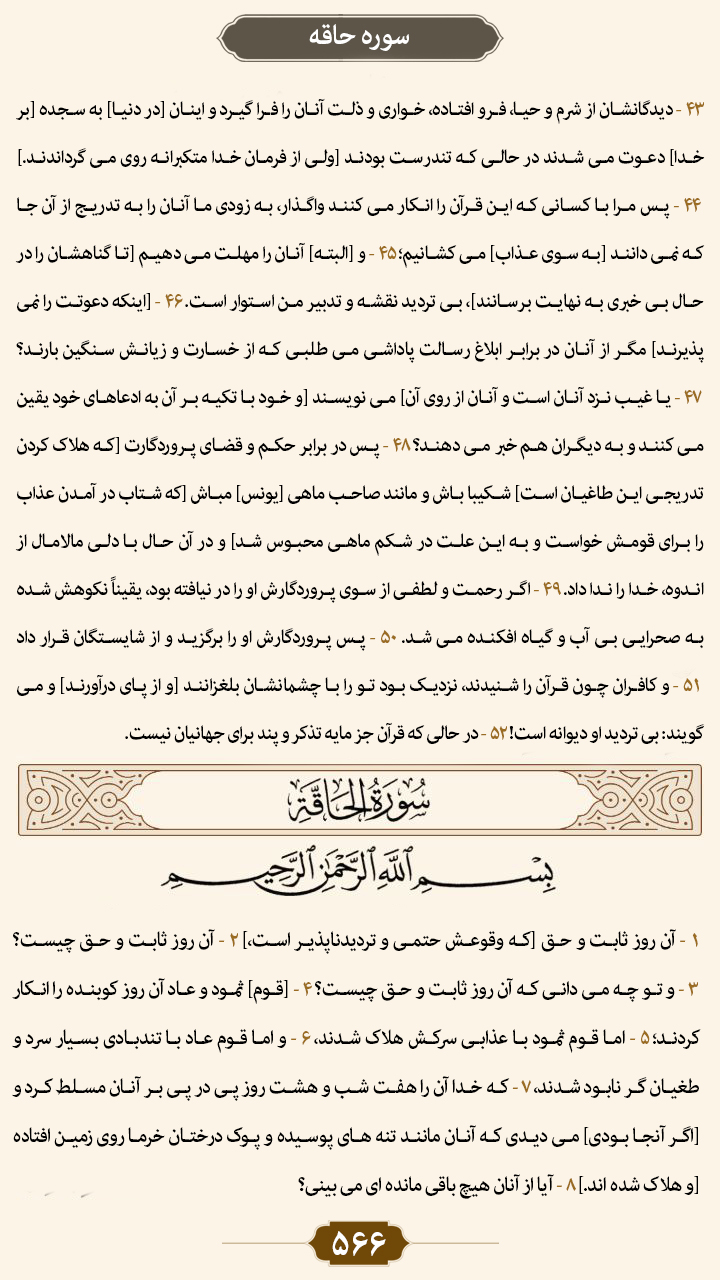 سوره حاقه
۴۳ - دیدگانشان از شرم و حیا، فرو افتاده، خواری و ذلت آنان را فرا گیرد و اینان [در دنیا] به سجده [بر
خدا] دعوت می شدند در حالی که تندرست بودند [ولی از فرمان خدا متکبرانه روی می گرداندند.]
۴۴ - پس مرا با کسانی که این قرآن را انکار می کنند واگذار، به زودی ما آنان را به تدریج از آن جا
که نمی دانند [به سوی عذاب] می کشانیم؛ ۴۵ - و [البته] آنان را مهلت می دهیم [تا گناهشان را در
حال بی خبری به نهایت برسانند]، بی تردید نقشه و تدبیر من استوار است. ۴۶ - [اینکه دعوتت را نمی
پذیرند] مگر از آنان در برابر ابلاغ رسالت پاداشی می طلبی که از خسارت و زیانش سنگین بارند؟
۴۷ - یا غیب نزد آنان است و آنان از روی آن] می نویسند [و خود با تکیه بر آن به ادعاهای خود یقین
می کنند و به دیگران هم خبر می دهند؟ ۴۸ - پس در برابر حکم و قضای پروردگارت [که هلاک کردن
تدریجی این طاغیان است] شکیبا باش و مانند صاحب ماهی [یونس] مباش [که شتاب در آمدن عذاب
را برای قومش خواست و به این علت در شکم ماهی محبوس شد] و در آن حال با دلی مالامال از
اندوه، خدا را ندا داد. ۴۹ - اگر رحمت و لطفی از سوی پروردگارش او را در نیافته بود، یقیناً نکوهش شده
به صحرایی بی آب و گیاه افکنده می شد. ۵۰ - پس پروردگارش او را برگزید و از شایستگان قرار داد
۵۱ - و کافران چون قرآن را شنیدند، نزدیک بود تو را با چشمانشان بلغزانند [و از پای درآورند] و می
گویند: بی تردید او دیوانه است! ۵۲ - در حالی که قرآن جز مایه تذکر و پند برای جهانیان نیست.
سُورَةُ الحَاقَّةِ
بِسْمِ اللَّهِ الرَّحْمَٰنِ الرَّحِيمِ
۱ - آن روز ثابت و حق [که وقوعش حتمی و تردیدناپذیر است،] ۲ - آن روز ثابت و حق چیست؟
۳ - و تو چه می دانی که آن روز ثابت و حق چیست؟ ۴ - [قوم] ثمود و عاد آن روز کوبنده را انکار
کردند؛ ۵ - اما قوم ثمود با عذابی سرکش هلاک شدند، ۶ - و اما قوم عاد با تندبادی بسیار سرد و
طغیان گر نابود شدند، ۷ - که خدا آن را هفت شب و هشت روز پی در پی بر آنان مسلط کرد و
[اگر آنجا بودی] می دیدی که آنان مانند تنه های پوسیده و پوک درختان خرما روی زمین افتاده
[و هلاک شده اند.] ۸ - آیا از آنان هیچ باقی مانده ای می بینی؟
۵۶۶